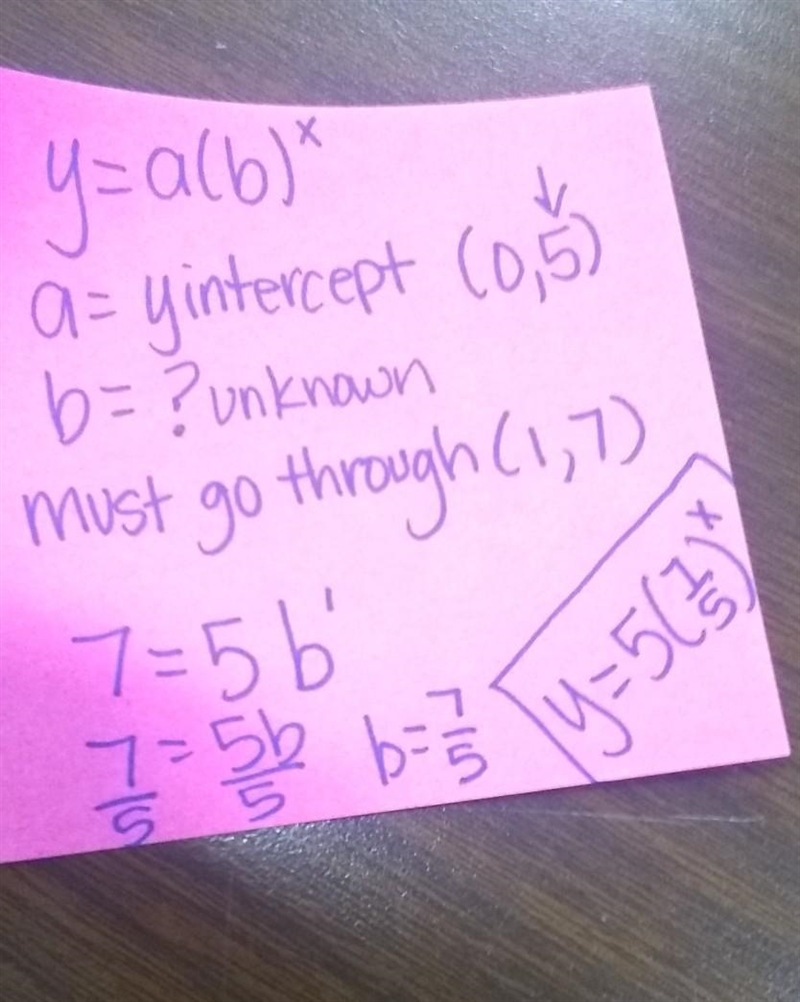 y=a(b)^x
a= yintercept (0,5)
b= ? unknown
must go through (1,7)
7=5b^1
7/5 = 5b/5 b=7/5
y=5(7/5)^x